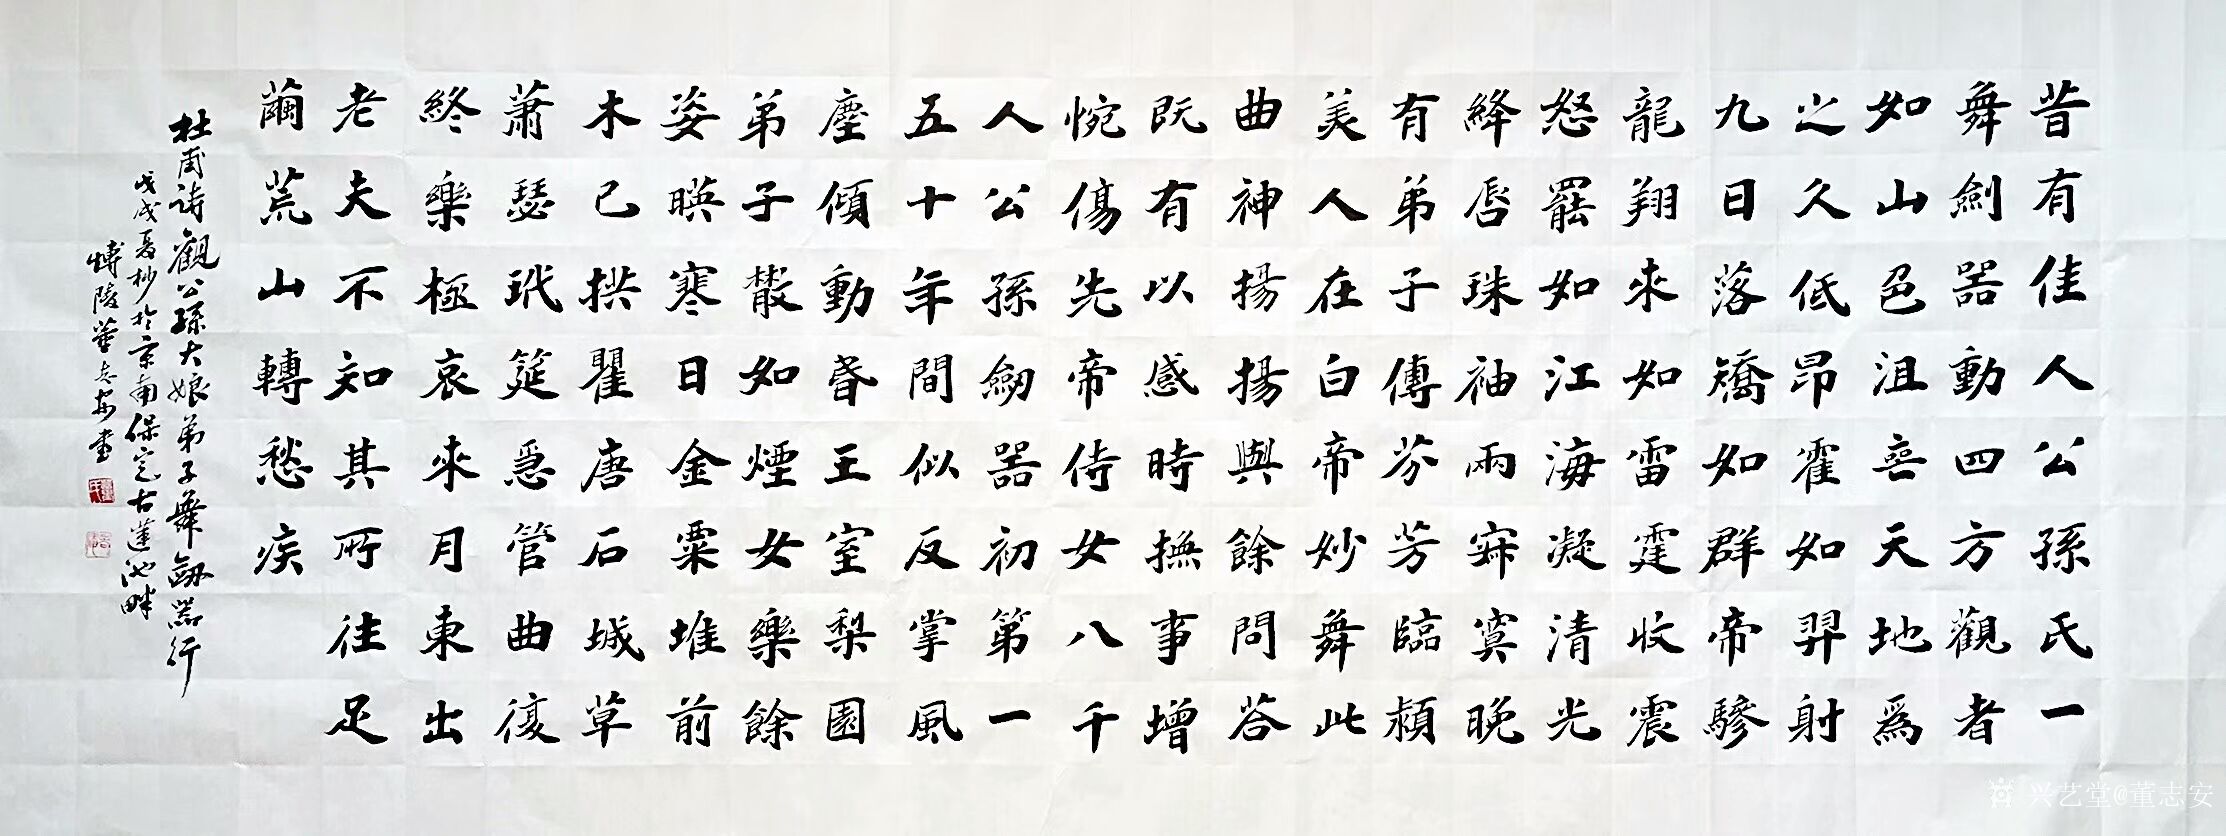 昔有佳人公孫氏一
舞劍器動四方觀者
如山色沮喪天地爲
之久低昂霍如羿射
九日落矯如群帝驂
龍翔來如雷霆收震
怒罷如江海凝清光
絳唇珠袖兩寂寞晚
有弟子傳芬芳臨潁
美人在白帝妙舞此
曲神揚揚與餘問答
既有以感時撫事增
惋傷先帝侍女八千
人公孫劒器初第一
五十年間似反掌風
塵傾動昏王室梨園
弟子散如煙女樂餘
姿暎寒日金粟堆前
木已拱瞿唐石城草
蕭瑟玳筵急管曲復
終樂極哀來月東出
老夫不知其所往足
繭荒山轉愁疾
杜甫詩觀公孫大娘弟子舞劒器行
戊戌夏杪於京南保定古蓮池畔
博陵董志安書
兴艺堂@董志安